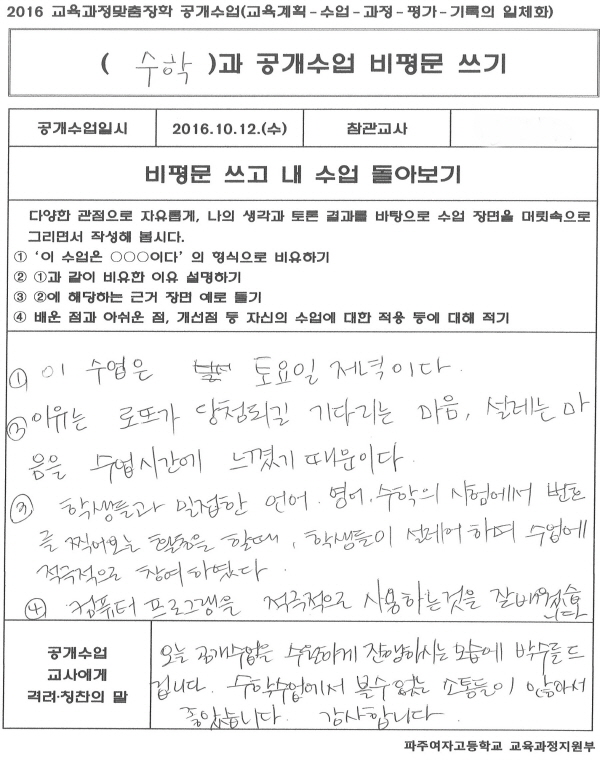 2016 교육과정맞춤장학 공개수업(교육계획-수업-과정-평가-기록의 일체화)
( 수학 )과 공개수업 비평문 쓰기
공개수업일시 2016.10.12.(수) 참관교사
비평문 쓰고 내 수업 돌아보기
다양한 관점으로 자유롭게, 나의 생각과 토론 결과를 바탕으로 수업 장면을 머릿속으로
그리면서 작성해 봅시다.
① '이 수업은 ○○○이다' 의 형식으로 비유하기
② ①과 같이 비유한 이유 설명하기
③ ②에 해당하는 근거 장면 예로 들기
④ 배운 점과 아쉬운 점, 개선점 등 자신의 수업에 대한 적용 등에 대해 적기
① 이 수업은 토요일 저녁이다.
② 이유는 로또가 당첨되길 기다리는 마음, 설레는 마
음을 수업시간에 느꼈기 때문이다.
③ 학생들과 밀접한 언어.영어.수학의 시험에서 번호
를 찍어보는 활동을 할때, 학생들이 설레어 하며 수업에
적극적으로 참여하였다.
④ 컴퓨터 프로그램을 적극적으로 사용하는것을 잘배웠습
공개수업
교사에게
격려·칭찬의 말
오늘 공개수업을 진행하시는 모습에 박수를 드
립니다. 수학수업에서 볼수없는 소통들이 많아서
좋았습니다. 감사합니다.
파주여자고등학교 교육과정지원부